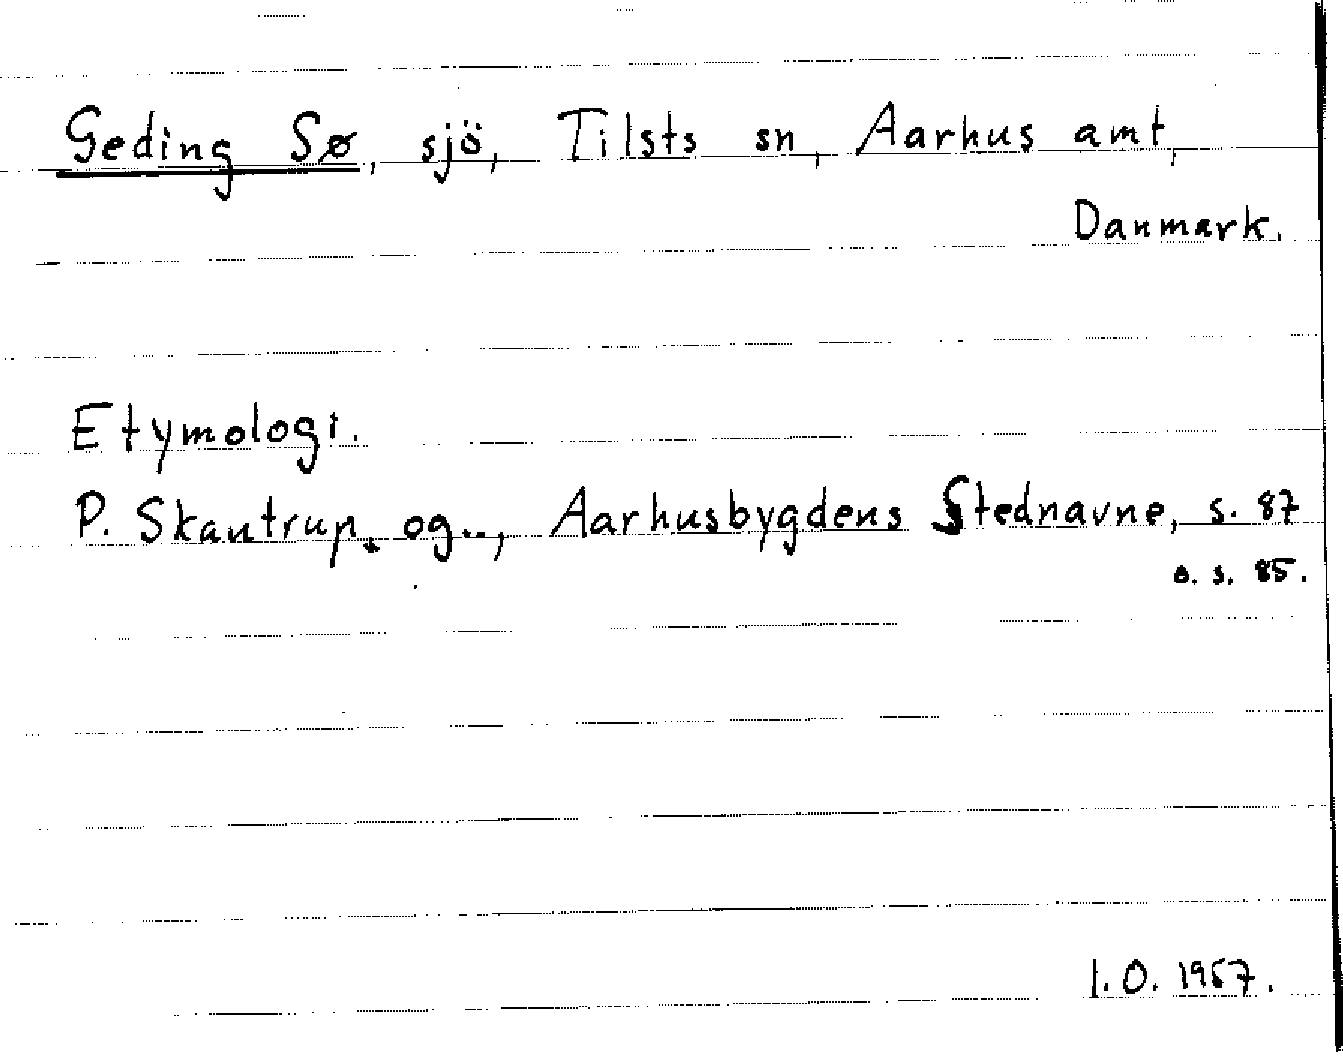 Geding Sø, sjö, Tilsts sn, Aarhus amt,
Danmark.
Etymologi.
P. Skautrup. og.., Aarhusbygdens Stednavne, s. 87
o. s. 85.
I.O. 1967.